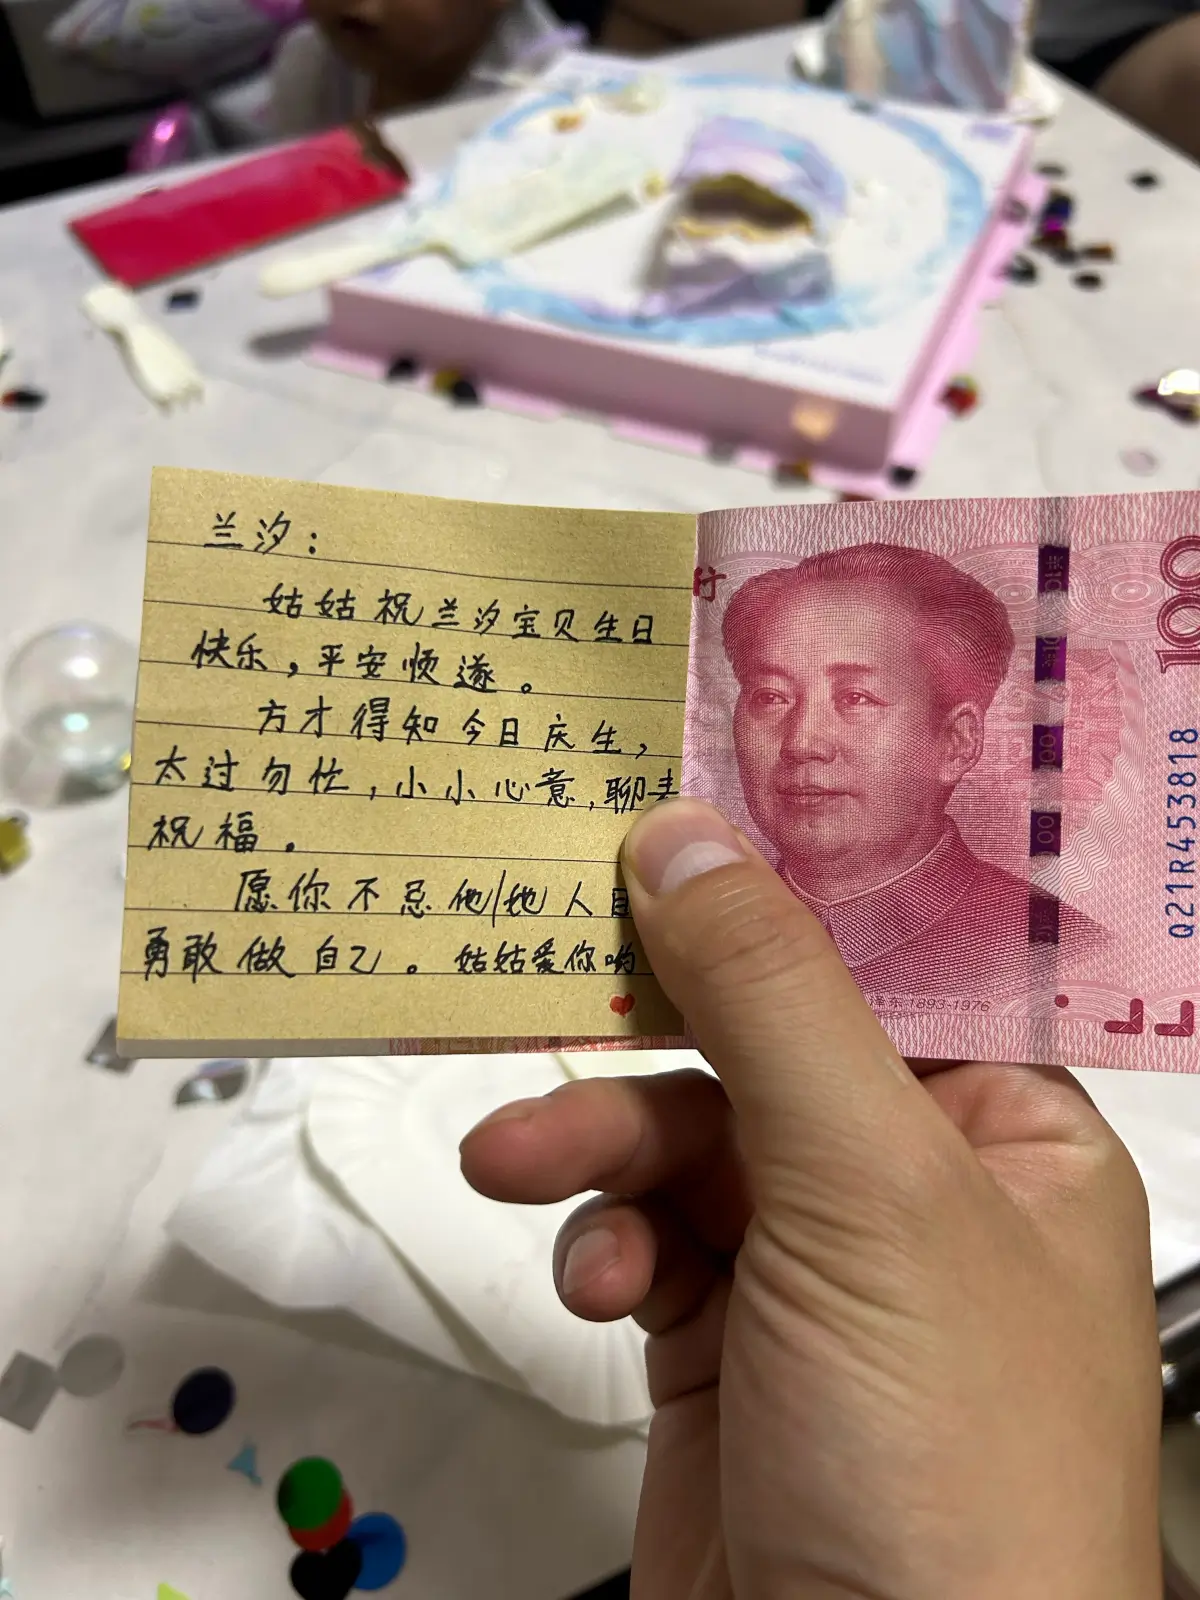 兰汐:
姑姑祝兰汐宝贝生日
快乐,平安顺遂。
方才得知今日庆生,
太过匆忙,小小心意,聊表
祝福。
愿你不忌他/她人目
勇敢做自己。姑姑爱你哟
行
100
Q21R453818
泽东 1893-1976